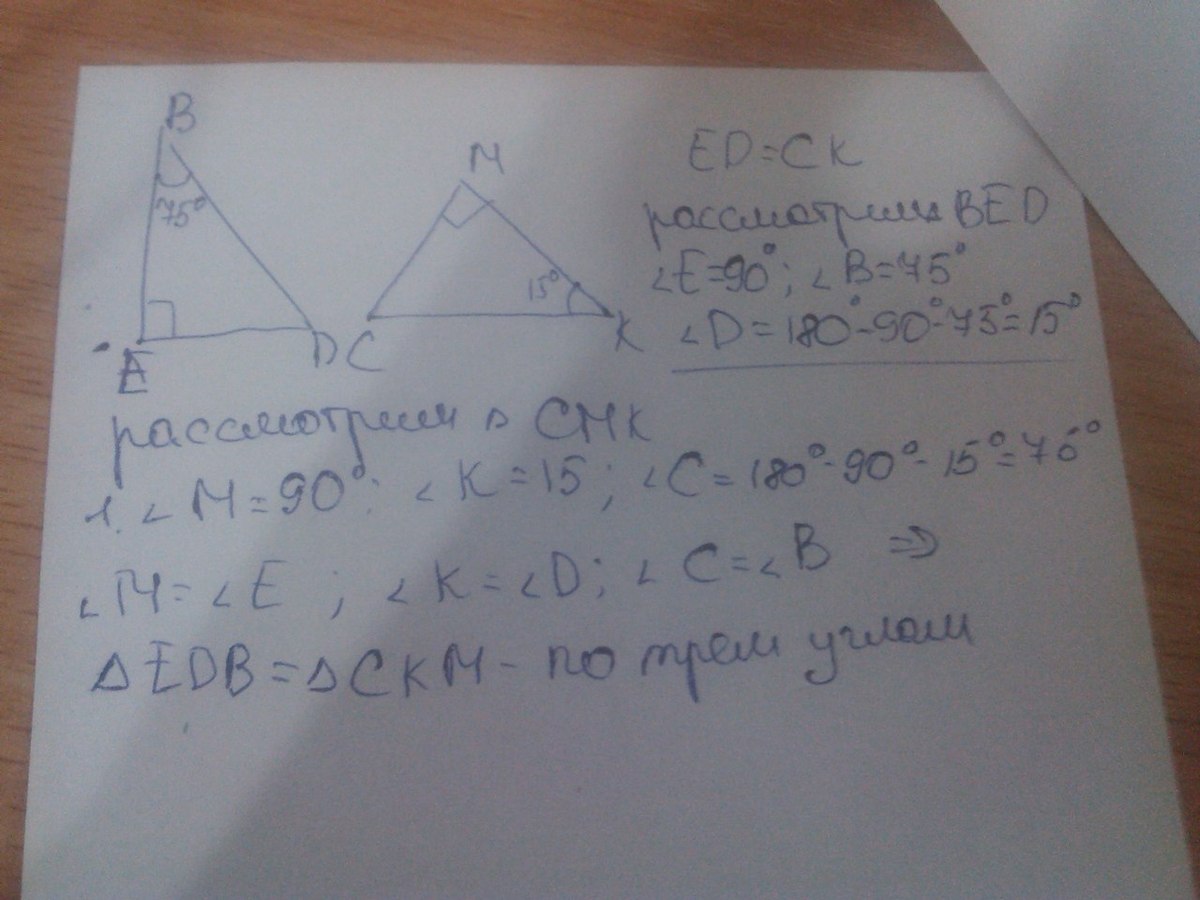 B
75°
E
D
M
15°
C
K
ED=CK
рассмотрим BED
∠E=90°; ∠B=75°
∠D=180°-90°-75°=15°
рассмотрим Δ CMK
1. ∠M=90°; ∠K=15; ∠C=180°-90°-15°=75°
∠M=∠E; ∠K=∠D; ∠C=∠B ⇒
ΔEDB=ΔCKM - по трем углам